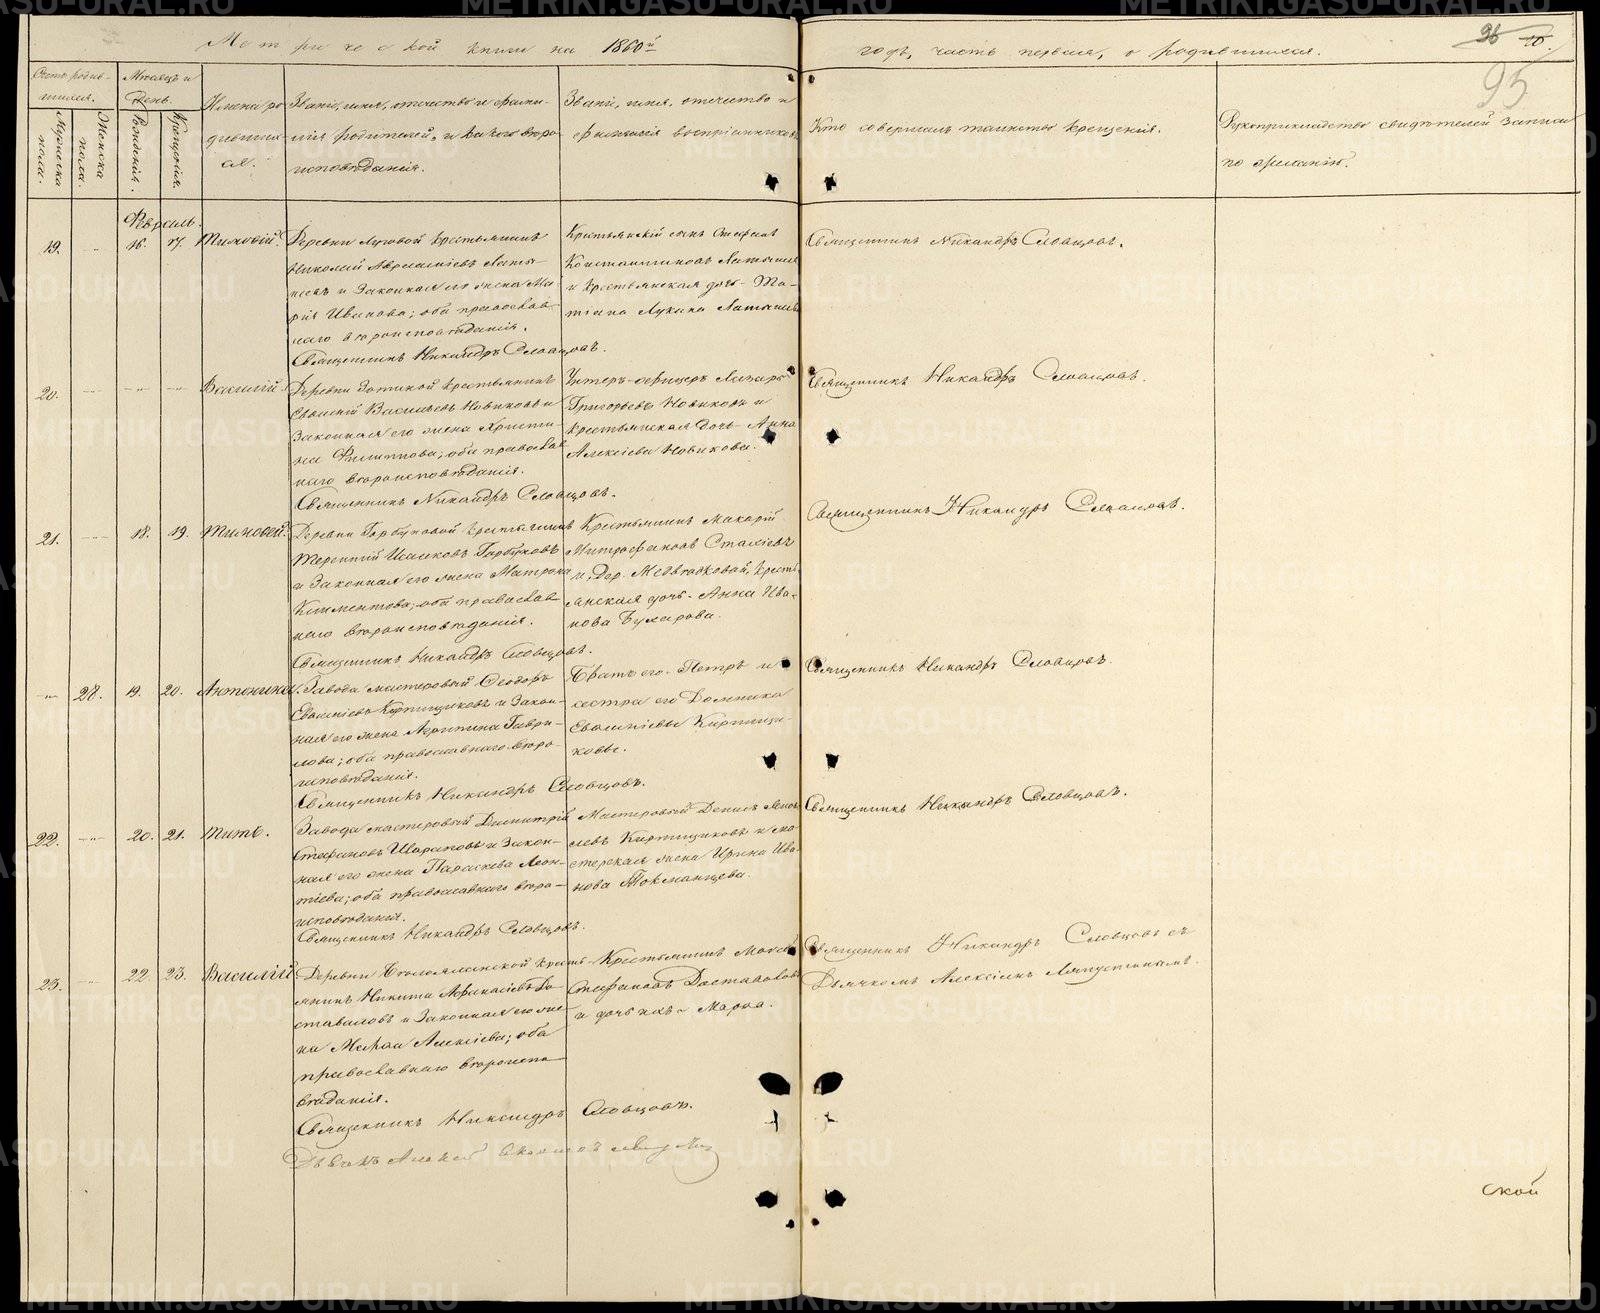 Метрической книги на 1860й
годъ, часть первая, о родившихся.
95
Счетъ родив-
шихся.
Мужеска
пола.
Женска
пола.
Мѣсяцъ и
День.
Рожденія.
Крещенія.
Имена ро
дивших-
ся.
Званіе, имя, отчество и фами-
лія родителей, и какого вѣро-
исповѣданія.
Званіе, имя, отчество и
фамилія воспріемниковъ
Кто совершалъ таинство крещенія.
Рукоприкладство свидѣтелей записи
по желанію.
Февраль.
19. 16. 17. Тимофей.
Деревни Луговой крестьянинъ
Николай
и Законная его жена Ма-
рія Иванова; оба православ-
наго вѣроисповѣданія.
Священникъ Никандръ Словцовъ.
Крестьянскій сынъ Стефанъ
Константиновъ
и крестьянская дочь Та-
тіана Лукина
Священникъ Никандръ Словцовъ.
20. Василій.
Деревни крестьянинъ
Евфимій Васильевъ Новиковъ и
Законная его жена Христи-
на Филиппова; оба православ
наго вѣроисповѣданія.
Священникъ Никандръ Словцовъ.
Унтеръ-офицеръ Лазарь
Григорьевъ Новиковъ и
крестьянская дочь Анна
Алексіева Новикова.
Священникъ Никандръ Словцовъ.
21. 18. 19. Тимофей.
Деревни Горбуновой крестьянинъ
Терентій Исаковъ Горбуновъ
и Законная его жена Матрона
Климентова; оба православ-
наго вѣроисповѣданія.
Священникъ Никандръ Словцовъ.
Крестьянинъ Макарій
Митрофановъ
и, дер. Медвѣдковой, кресть-
янская дочь Анна Ива-
нова
Священникъ Никандръ Словцовъ.
27. 19. 20. Антонина.
Завода мастеровый Ѳеодоръ
Евфиміевъ Кирпищиковъ и Закон-
ная его жена Агрипина Гаври-
лова; оба православнаго вѣро-
исповѣданія.
Священникъ Никандръ Словцовъ.
Братъ его Петръ и
сестра его Домника
Евфиміевы Кирпищи-
ковы.
Священникъ Никандръ Словцовъ.
22. 20. 21. Титъ.
Завода мастеровый Димитрій
Стефановъ Шараповъ и Закон-
ная его жена Параскева Леон-
тіева; оба православнаго вѣро-
исповѣданія.
Священникъ Никандръ Словцовъ.
Мастеровый Денисъ
Кирпищиковъ и ма-
стерская жена Ирина Ива-
нова Токманцева.
Священникъ Никандръ Словцовъ.
23. 22. 23. Василій
Деревни кресть-
янинъ Никита Аѳанасіевъ До-
ставаловъ и Законная его же-
на Марѳа Алексіева; оба
православнаго вѣроиспо-
вѣданія.
Священникъ Никандръ Словцовъ.
Дьячекъ Алексей
Крестьянинъ Моисей
Стефановъ Достоваловъ
и дочь ихъ Марѳа.
Священникъ Никандръ Словцовъ съ
Дьячкомъ Алексіемъ Ляпустинымъ.
ской
METRIKI.GASO-URAL.RU